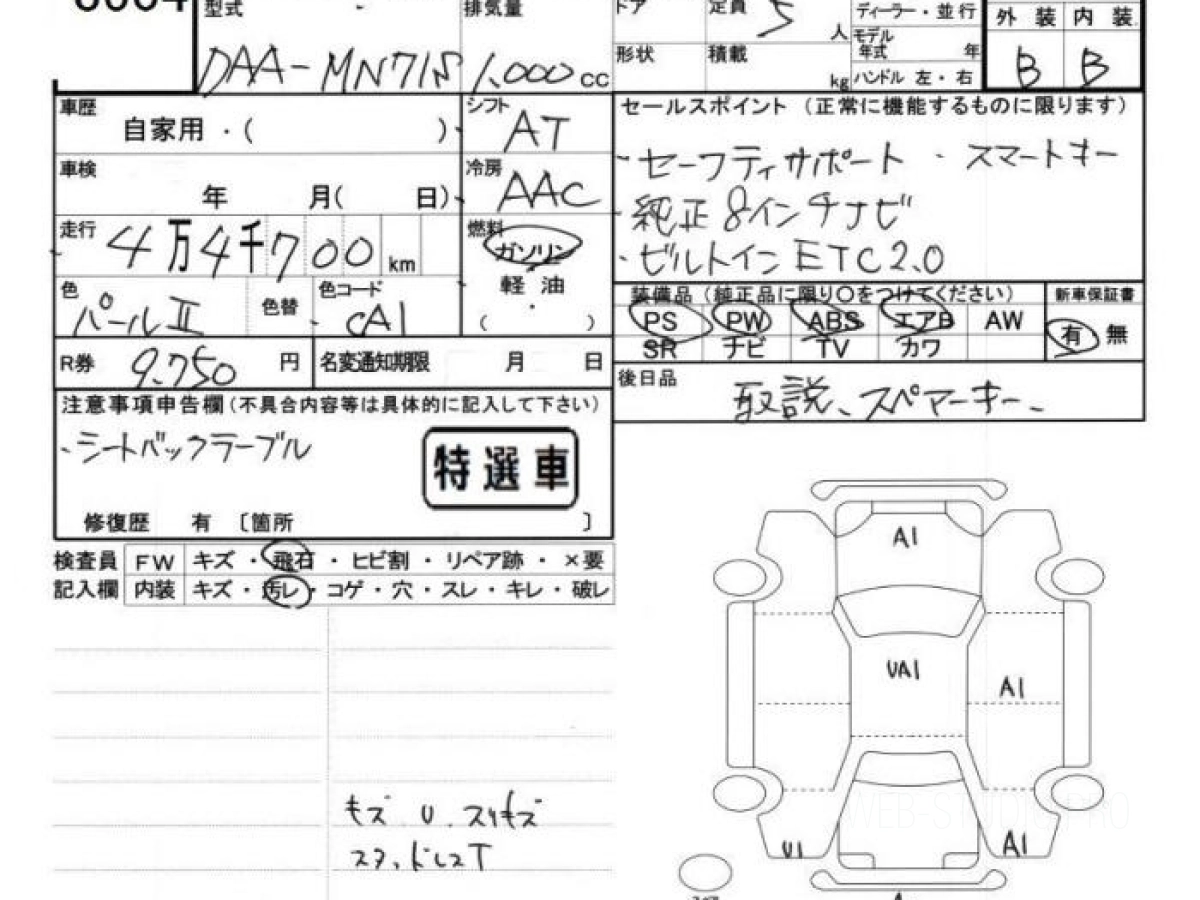 型式 排気量 ドア 定員 5 人 ディーラー・並行 外装 内装
DAA-MN71S 1,000 cc 形状 積載 kg モデル年式 年 ハンドル 左・右 B B
車歴 自家用・( ) シフト AT セールスポイント (正常に機能するものに限ります)
車検 年 月( 日) 冷房 AAC ・セーフティサポート ・スマートキー
走行 4万4千700km 燃料 ガソリン 純正8インチナビ
軽油 ・ビルトインETC2.0
( )
色 パールⅡ 色替 色コード CA1 装備品 (純正品に限り○をつけてください) 新車保証書
PS PW ABS エアB AW 有 無
SR ナビ TV カワ
R券 9,750 円 名変通知期限 月 日 後日品 取説、スペアーキー、
注意事項申告欄(不具合内容等は具体的に記入して下さい)
・シートバックテーブル
特選車
修復歴 有 〔箇所 〕
検査員 FW キズ・飛石・ヒビ割・リペア跡・×要
記入欄 内装 キズ・汚レ・コゲ・穴・スレ・キレ・破レ
A1
UA1
A1
キズ U スリキズ
U1 A1
WEB-STUDIO PRO